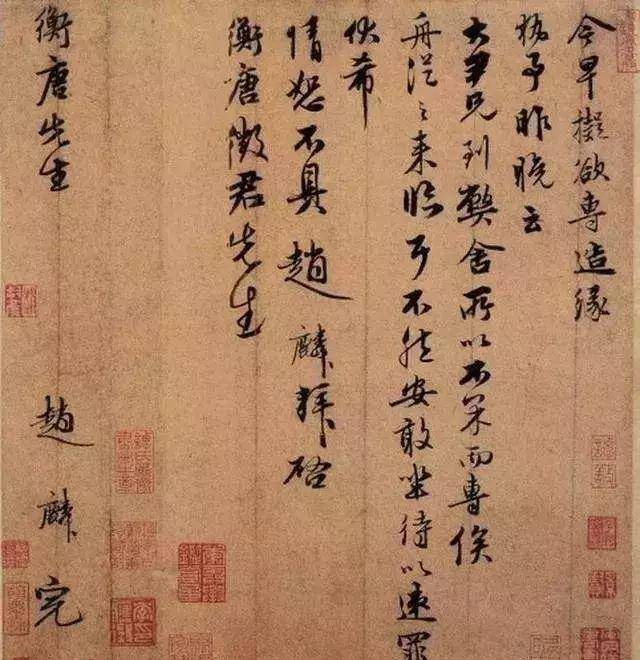 今早擬欲專造緣
執事昨晚云
大尹兄到弊舍所以不果而專俟
舟從之來臨耳不然安敢坐待以速罪
伏希
情恕不具趙麟拜啓
衡唐徵君先生
衡唐先生 趙麟完